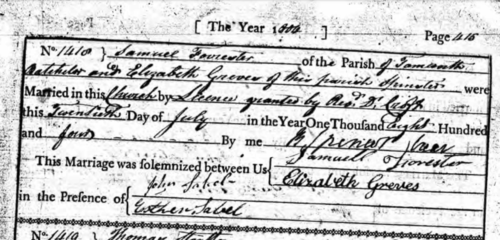 [ The Year 1804 ] Page 416
No. 1418 } Samuel Forrester of the Parish of Tamworth
Batchelor and Elizabeth Greves of this parish Spinster were
Married in this Church by Licence granted by Revd.
this Twentieth Day of July in the Year One Thousand Eight Hundred
and four By me Spencer
This Marriage was solemnized between Us { Samuel Forrester
Elizabeth Greves
in the Presence of { John Sabel
Esther Sabel
No. 1419 } Thomas